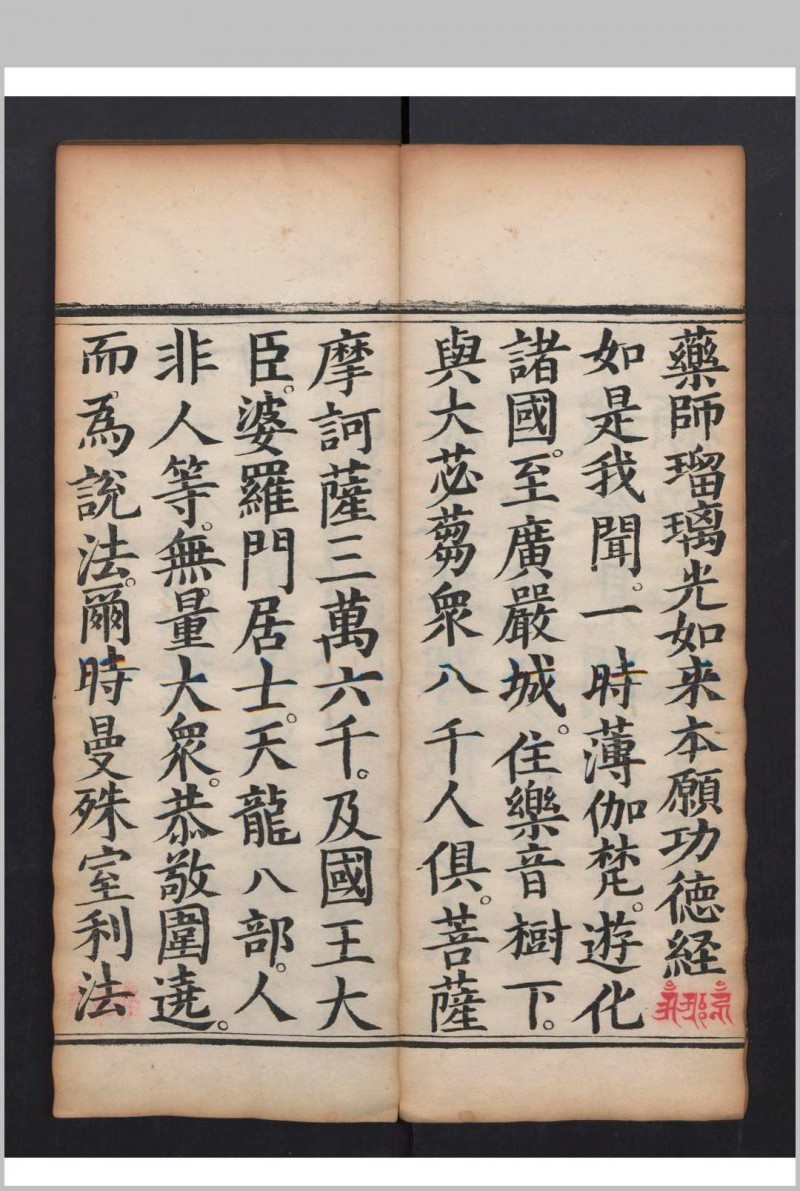 藥師瑠璃光如来本願功徳経
如是我聞。一時薄伽梵。遊化
諸國。至廣嚴城。住樂音樹下。
與大苾蒭衆八千人俱。菩薩
摩訶薩三萬六千。及國王大
臣。婆羅門居士。天龍八部。人
非人等。無量大衆。恭敬圍遶。
而為說法。爾時曼殊室利法